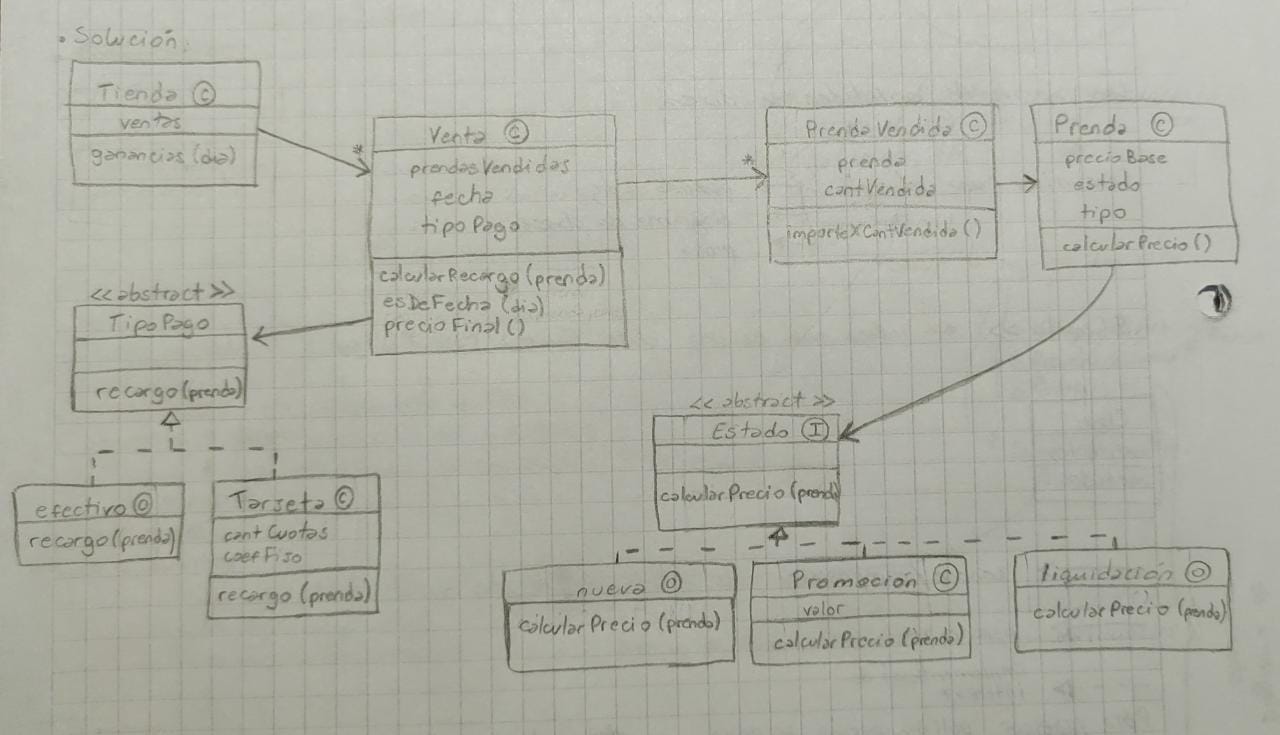 • Solución.
Tienda C
ventas
ganancias (dia)
Venta C
prendasVendidas
fecha
tipoPago
calcularRecargo (prenda)
esDeFecha (dia)
precioFinal ()
*
*
PrendaVendida C
prenda
cantVendida
importeXCantVendida ()
Prenda C
precioBase
estado
tipo
calcularPrecio ()
<<abstract>>
TipoPago
recargo (prenda)
efectivo O
recargo (prenda)
Tarjeta C
cantCuotas
coefFijo
recargo (prenda)
<<abstract>>
Estado I
calcularPrecio (prenda)
nueva O
calcularPrecio (prenda)
Promoción C
valor
calcularPrecio (prenda)
liquidación O
calcularPrecio (prenda)